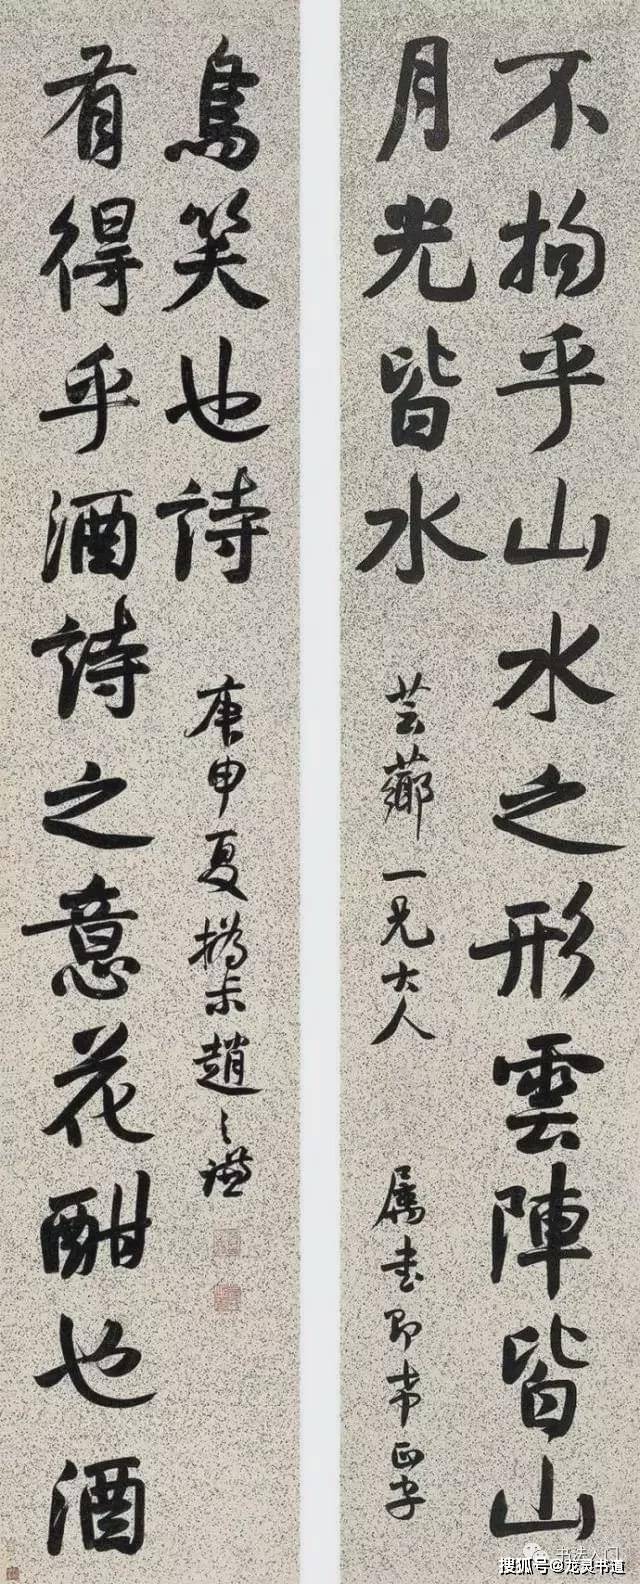 不拘乎山水之形雲陣皆山
月光皆水
芸薌一兄大人
属書即希正字
有得乎酒詩之意花酣也酒
鳥笑也詩
庚申夏撝尗趙之謙
书法入门
搜狐号@龙灵书道